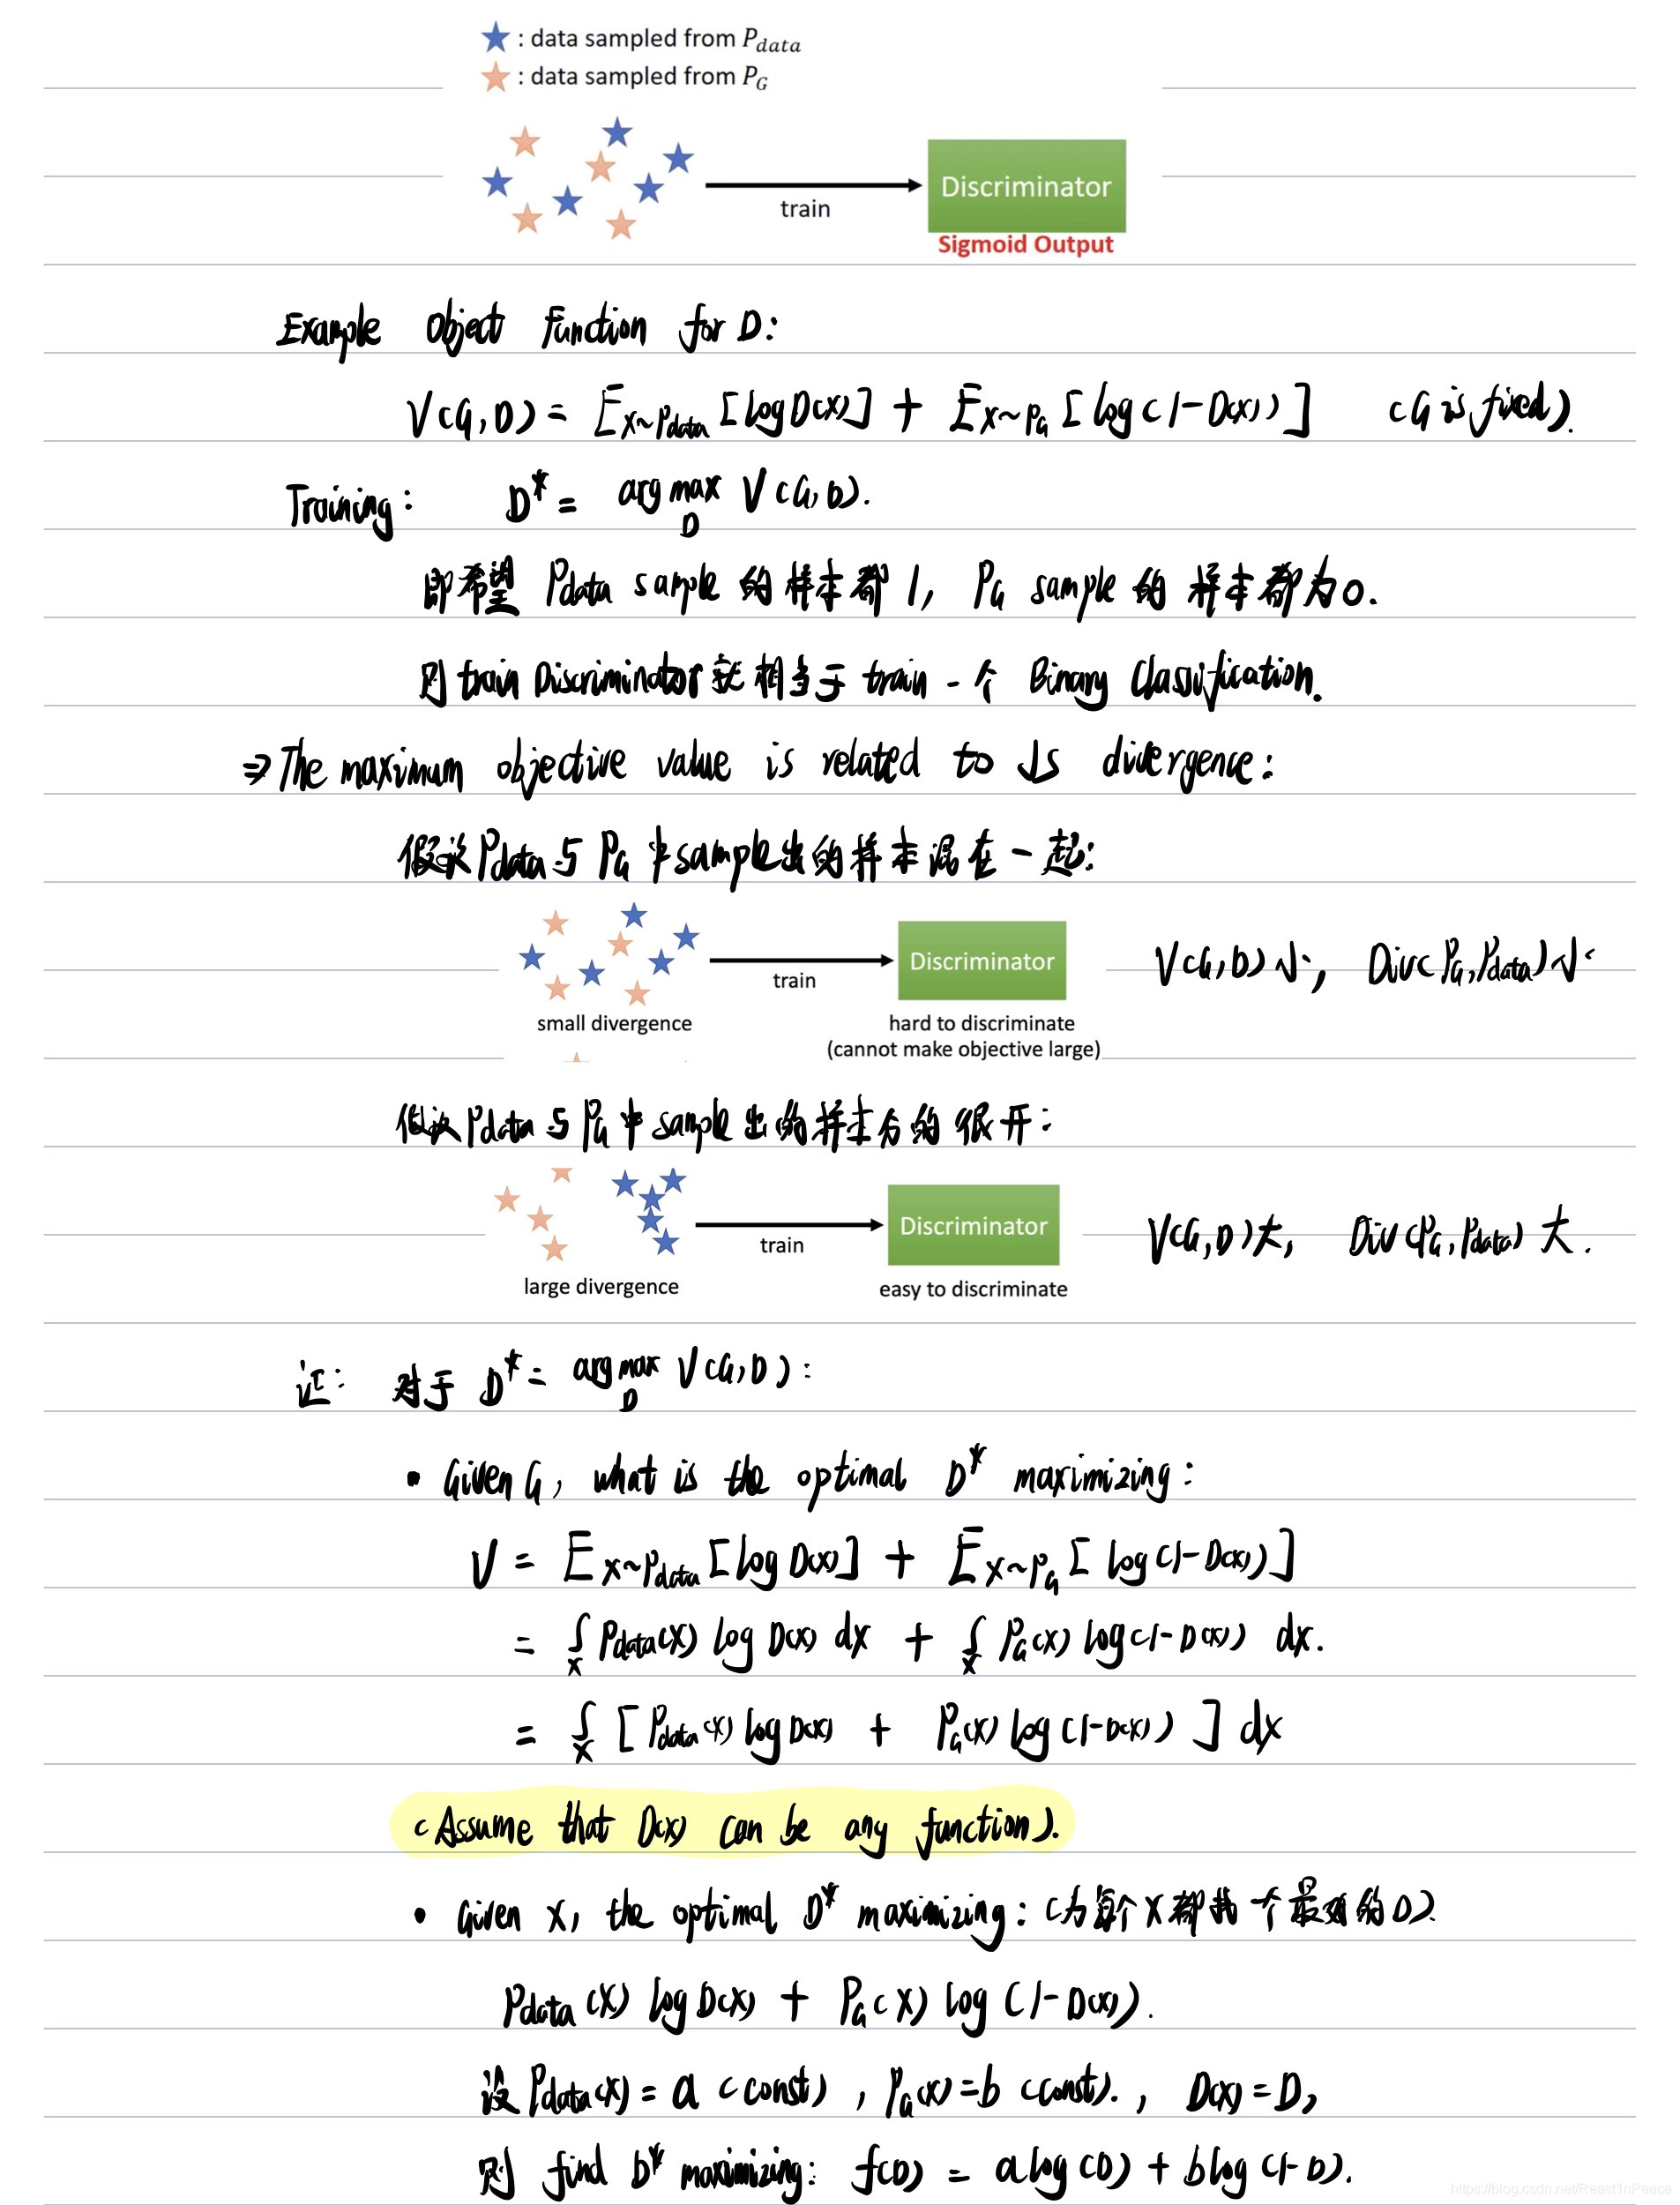 : data sampled from P_data
: data sampled from P_G
train
Discriminator
Sigmoid Output
Example Object Function for D:
V(G,D) = E_{x~Pdata}[log D(x)] + E_{x~PG}[log(1-D(x))] (G is fixed).
Training: D* = arg max_D V(G,D).
即希望 Pdata sample 的样本都 1, PG sample 的样本都为 0.
则 train Discriminator 就相当于 train 一个 Binary Classification.
⇒ The maximum objective value is related to JS divergence:
假设 Pdata 与 PG 中 sample 出的样本混在一起:
train
Discriminator
V(G,D)小, Div(PG,Pdata)小
small divergence
hard to discriminate
(cannot make objective large)
假设 Pdata 与 PG 中 sample 出的样本分的很开:
train
Discriminator
V(G,D)大, Div(PG,Pdata)大.
large divergence
easy to discriminate
证: 对于 D* = arg max_D V(G,D):
• Given G, what is the optimal D* maximizing:
V = E_{x~Pdata}[log D(x)] + E_{x~PG}[log(1-D(x))]
= ∫_x Pdata(x) log D(x) dx + ∫_x PG(x) log(1-D(x)) dx.
= ∫_x [Pdata(x) log D(x) + PG(x) log(1-D(x))] dx
(Assume that D(x) can be any function).
• Given x, the optimal D* maximizing: (为每个x都找一个最好的D)
Pdata(x) log D(x) + PG(x) log(1-D(x)).
设 Pdata(x) = a (const), PG(x) = b (const)., D(x) = D,
则 find D* maximizing: f(D) = a log(D) + b log(1-D).
https://blog.csdn.net/Reast1nPeace